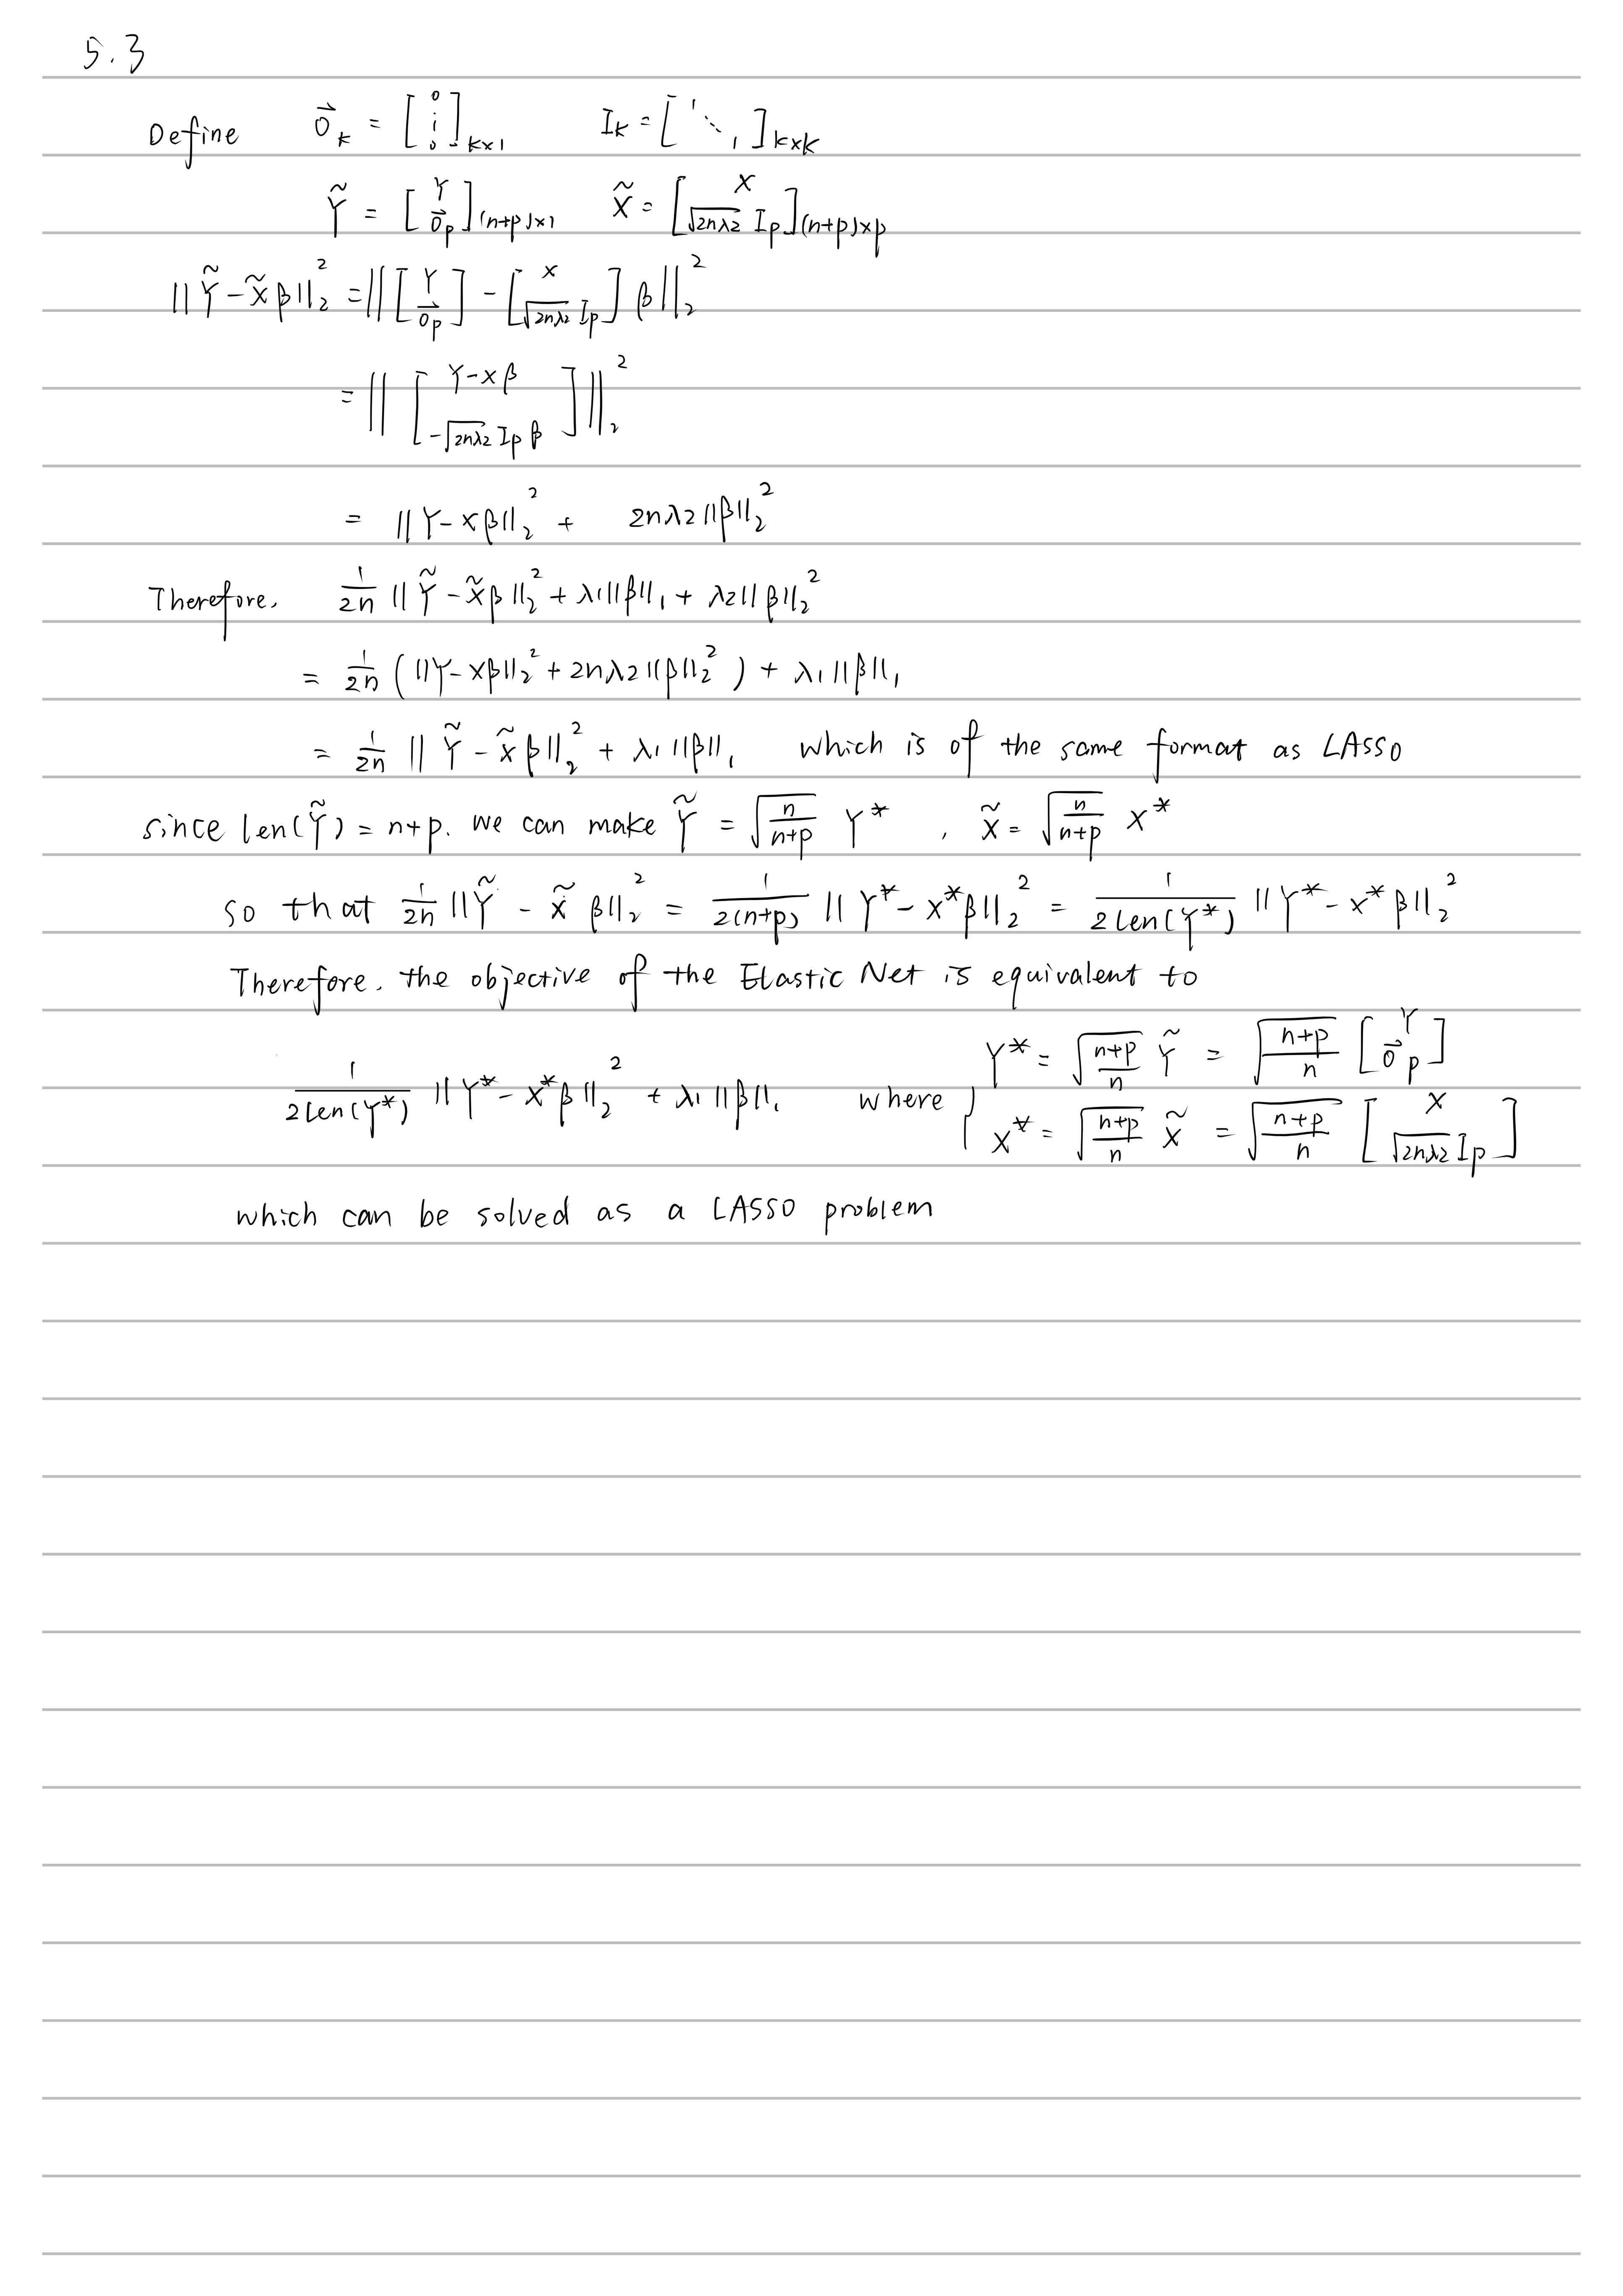 5.3
Define \vec{0}_k = [0 ⋮ 0]_{k×1}  I_k = [1 ⋱ 1]_{k×k}
Ỹ = [Y ; \vec{0}_p]_{(n+p)×1}  X̃ = [X ; √(2nλ2) I_p]_{(n+p)×p}
||Ỹ - X̃β||₂² = ||[Y ; \vec{0}_p] - [X ; √(2nλ2) I_p] β||₂²
= ||[Y - Xβ ; -√(2nλ2) I_p β]||₂²
= ||Y - Xβ||₂² + 2nλ2||β||₂²
Therefore, 1/(2n) ||Ỹ - X̃β||₂² + λ1||β||₁ + λ2||β||₂²
= 1/(2n) (||Y - Xβ||₂² + 2nλ2||β||₂²) + λ1||β||₁
= 1/(2n) ||Ỹ - X̃β||₂² + λ1||β||₁ which is of the same format as LASSO
since len(Ỹ) = n+p. we can make Ỹ = √(n/(n+p)) Y* , X̃ = √(n/(n+p)) X*
so that 1/(2n) ||Ỹ - X̃β||₂² = 1/(2(n+p)) ||Y* - X*β||₂² = 1/(2len(Y*)) ||Y* - X*β||₂²
Therefore, the objective of the Elastic Net is equivalent to
1/(2len(Y*)) ||Y* - X*β||₂² + λ1||β||₁ where { Y* = √((n+p)/n) Ỹ = √((n+p)/n) [Y ; \vec{0}_p]
X* = √((n+p)/n) X̃ = √((n+p)/n) [X ; √(2nλ2) I_p]
which can be solved as a LASSO problem